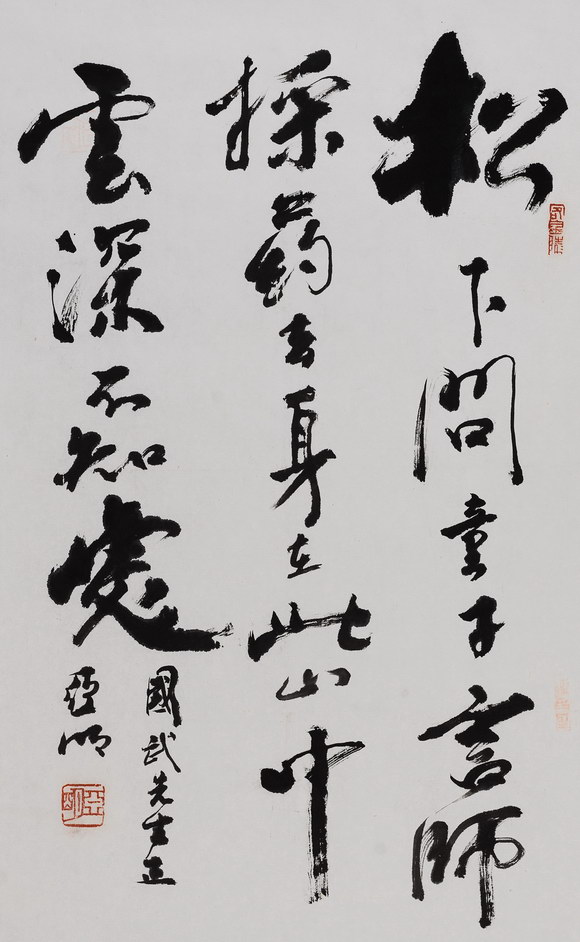 松下問童子言師
採葯去身在此山中
雲深不知處
國武先生正
亞明
亞明